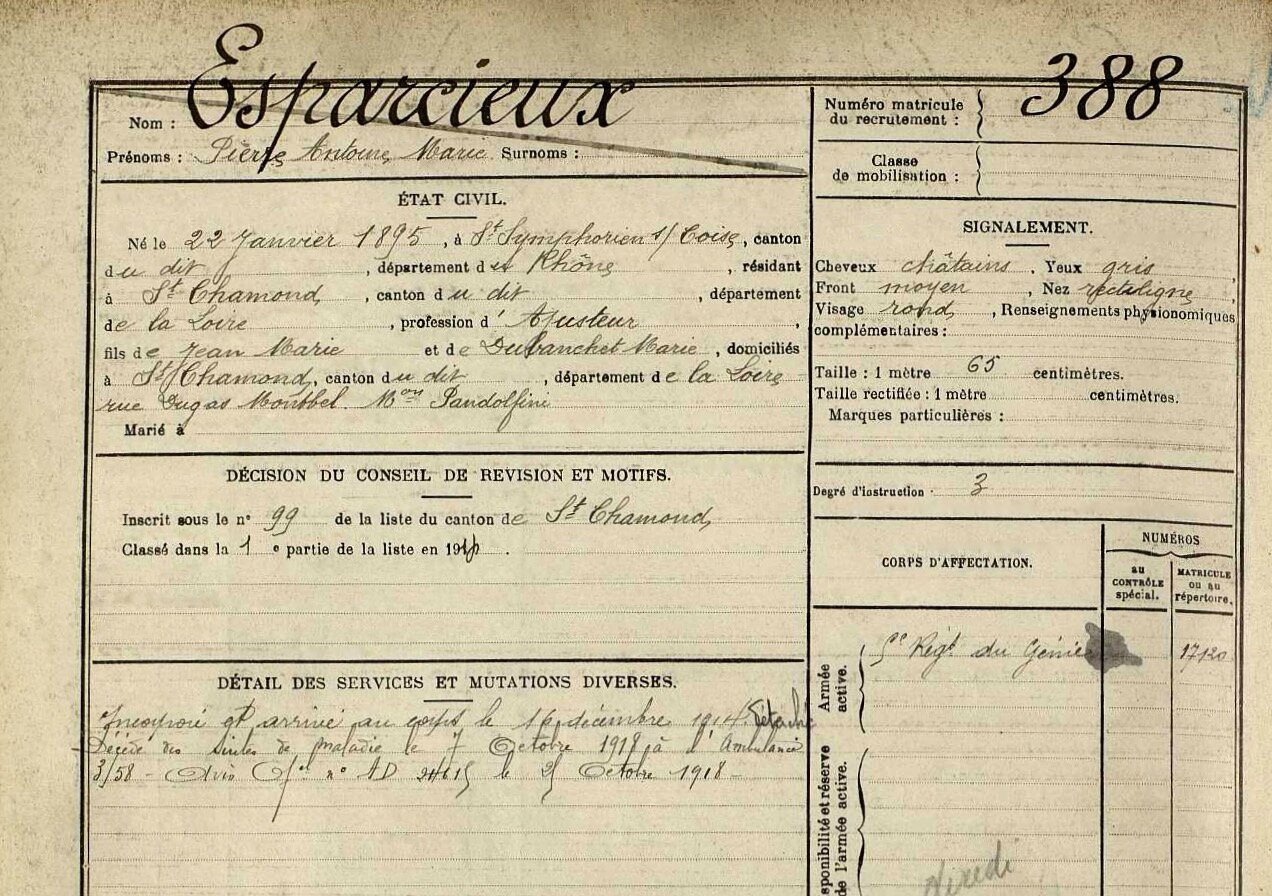 Esparcieux
Nom :
Prénoms : Pierre Antoine Marie Surnoms :
ÉTAT CIVIL.
Né le 22 Janvier 1895, à St Symphorien s/ Coise, canton
du dit, département de Rhône, résidant
à St Chamond, canton du dit, département
de la Loire, profession d'Ajusteur,
fils de Jean Marie et de Dubanchet Marie, domiciliés
à St Chamond, canton du dit, département de la Loire
rue Dugas Montbel. Mon Pandolfini
Marié à
DÉCISION DU CONSEIL DE REVISION ET MOTIFS.
Inscrit sous le n° 99 de la liste du canton de St Chamond
Classé dans la 1e partie de la liste en 191
DÉTAIL DES SERVICES ET MUTATIONS DIVERSES.
Incorporé et arrivé au corps le 16 décembre 1914.
Décédé des suites de maladie le 7 Octobre 1918 à l'Ambulance
3/58 - Avis n° AD le 25 Octobre 1918 -
Numéro matricule
du recrutement :
388
Classe
de mobilisation :
SIGNALEMENT.
Cheveux châtains. Yeux gris,
Front moyen, Nez rectiligne,
Visage rond, Renseignements physionomiques
complémentaires :
Taille : 1 mètre 65 centimètres.
Taille rectifiée : 1 mètre centimètres.
Marques particulières :
Degré d'instruction. 3
CORPS D'AFFECTATION.
NUMÉROS
au
CONTRÔLE
spécial.
MATRICULE
ou au
répertoire.
Armée
active.
Régt du Génie
17120
sponibilité et réserve
de l'armée active.